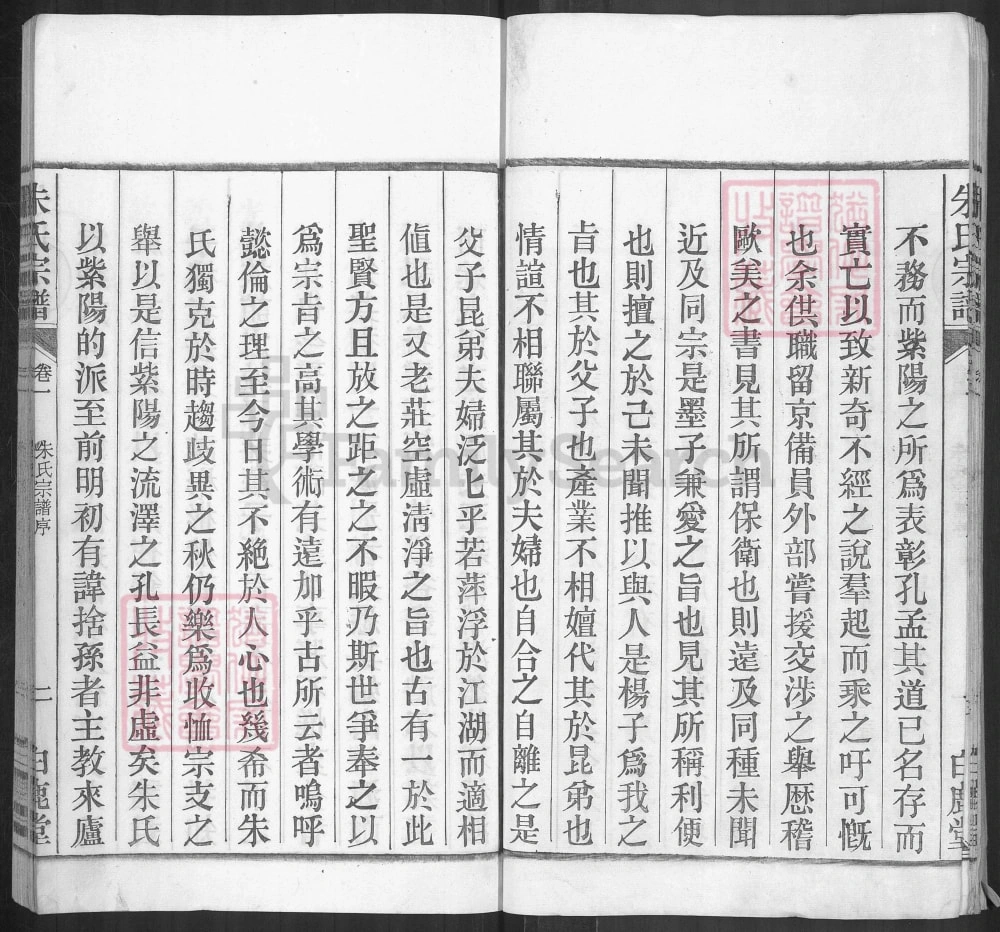 朱氏宗譜
白鹿堂
不務而紫陽之所爲表彰孔孟其道已名存而
實亡以致新奇不經之說羣起而乘之吁可慨
也余供職留京備員外部嘗援交涉之舉歷稽
歐美之書見其所謂保衛也則遠及同種未聞
近及同宗是墨子兼愛之旨也見其所稱利便
也則擅之於己未聞推以與人是楊子爲我之
旨也其於父子也產業不相嬗代其於昆弟也
情誼不相聯屬其於夫婦也自合之自離之是
父子昆弟夫婦泛七乎若萍浮於江湖而適相
值也是又老莊空虛淸淨之旨也古有一於此
聖賢方且放之距之之不暇乃斯世爭奉之以
爲宗旨之高其學術有遠加乎古所云者嗚呼
懿倫之理至今日其不絕於人心也幾希而朱
氏獨克於時趨歧異之秋仍樂爲收恤宗支之
舉以是信紫陽之流澤之孔長益非虛矣朱氏
以紫陽的派至前明初有諱捨孫者主教來廬
朱氏宗譜
卷一
朱氏宗譜序
二
白鹿堂
FamilySearch